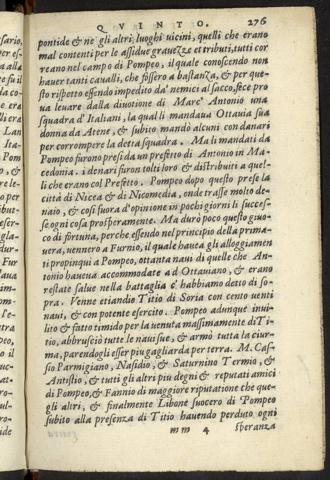 QVINTO. 276
pontide & ne gli altri luoghi uicini, quelli che erano
mal contenti per le assidue grauezze et tributi, tutti cor
reano nel campo di Pompeo, il quale conoscendo non
hauer tanti caualli, che fossero a bastanza, & per que-
sto rispetto essendo impedito da' nemici al sacco, fece pro
ua leuare dalla diuotione di Marc' Antonio una
squadra d' Italiani, la qual li mandaua Ottauia sua
donna da Atene, & subito mandò alcuni con danari
per corrompere la detta squadra. Ma li mandati da
Pompeo furono presi da un prefetto di Antonio in Ma
cedonia. i denari furon tolti loro & distribuiti a quel-
li che erano col Prefetto. Pompeo dopo questo prese la
città di Nicea & di Nicomedia, onde trasse molto de-
naio, & cosi fuora d'opinione in pochi giorni li succes-
se ogni cosa prosperamente. Ma durò poco questo giuo-
co di fortuna, perche essendo nel principio della prima-
uera, uennero a Furnio, il quale hauea gli alloggiamen
ti propinqui a Pompeo, ottanta naui di quelle che An-
tonio haueua accommodate ad Ottauiano, & erano
restate salue nella battaglia c' habbiamo detto di so-
pra. Venne etiandio Titio di Soria con cento uenti
naui, & con potente esercito. Pompeo adunque inui-
lito & fatto timido per la uenuta massimamente di Ti-
tio, abbrusciò tutte le naui sue, & armò tutta la ciur-
ma, parendogli esser piu gagliardo per terra. M. Cas-
sio Parmigiano, Nasidio, & Saturnino Termio, &
Antistio, & tutti gli altri piu degni & reputati amici
di Pompeo, & Fannio di maggiore riputatione che que-
gli altri, & finalmente Libone suocero di Pompeo
subito alla presenza di Titio hauendo perduto ogni
mm 4 speranza